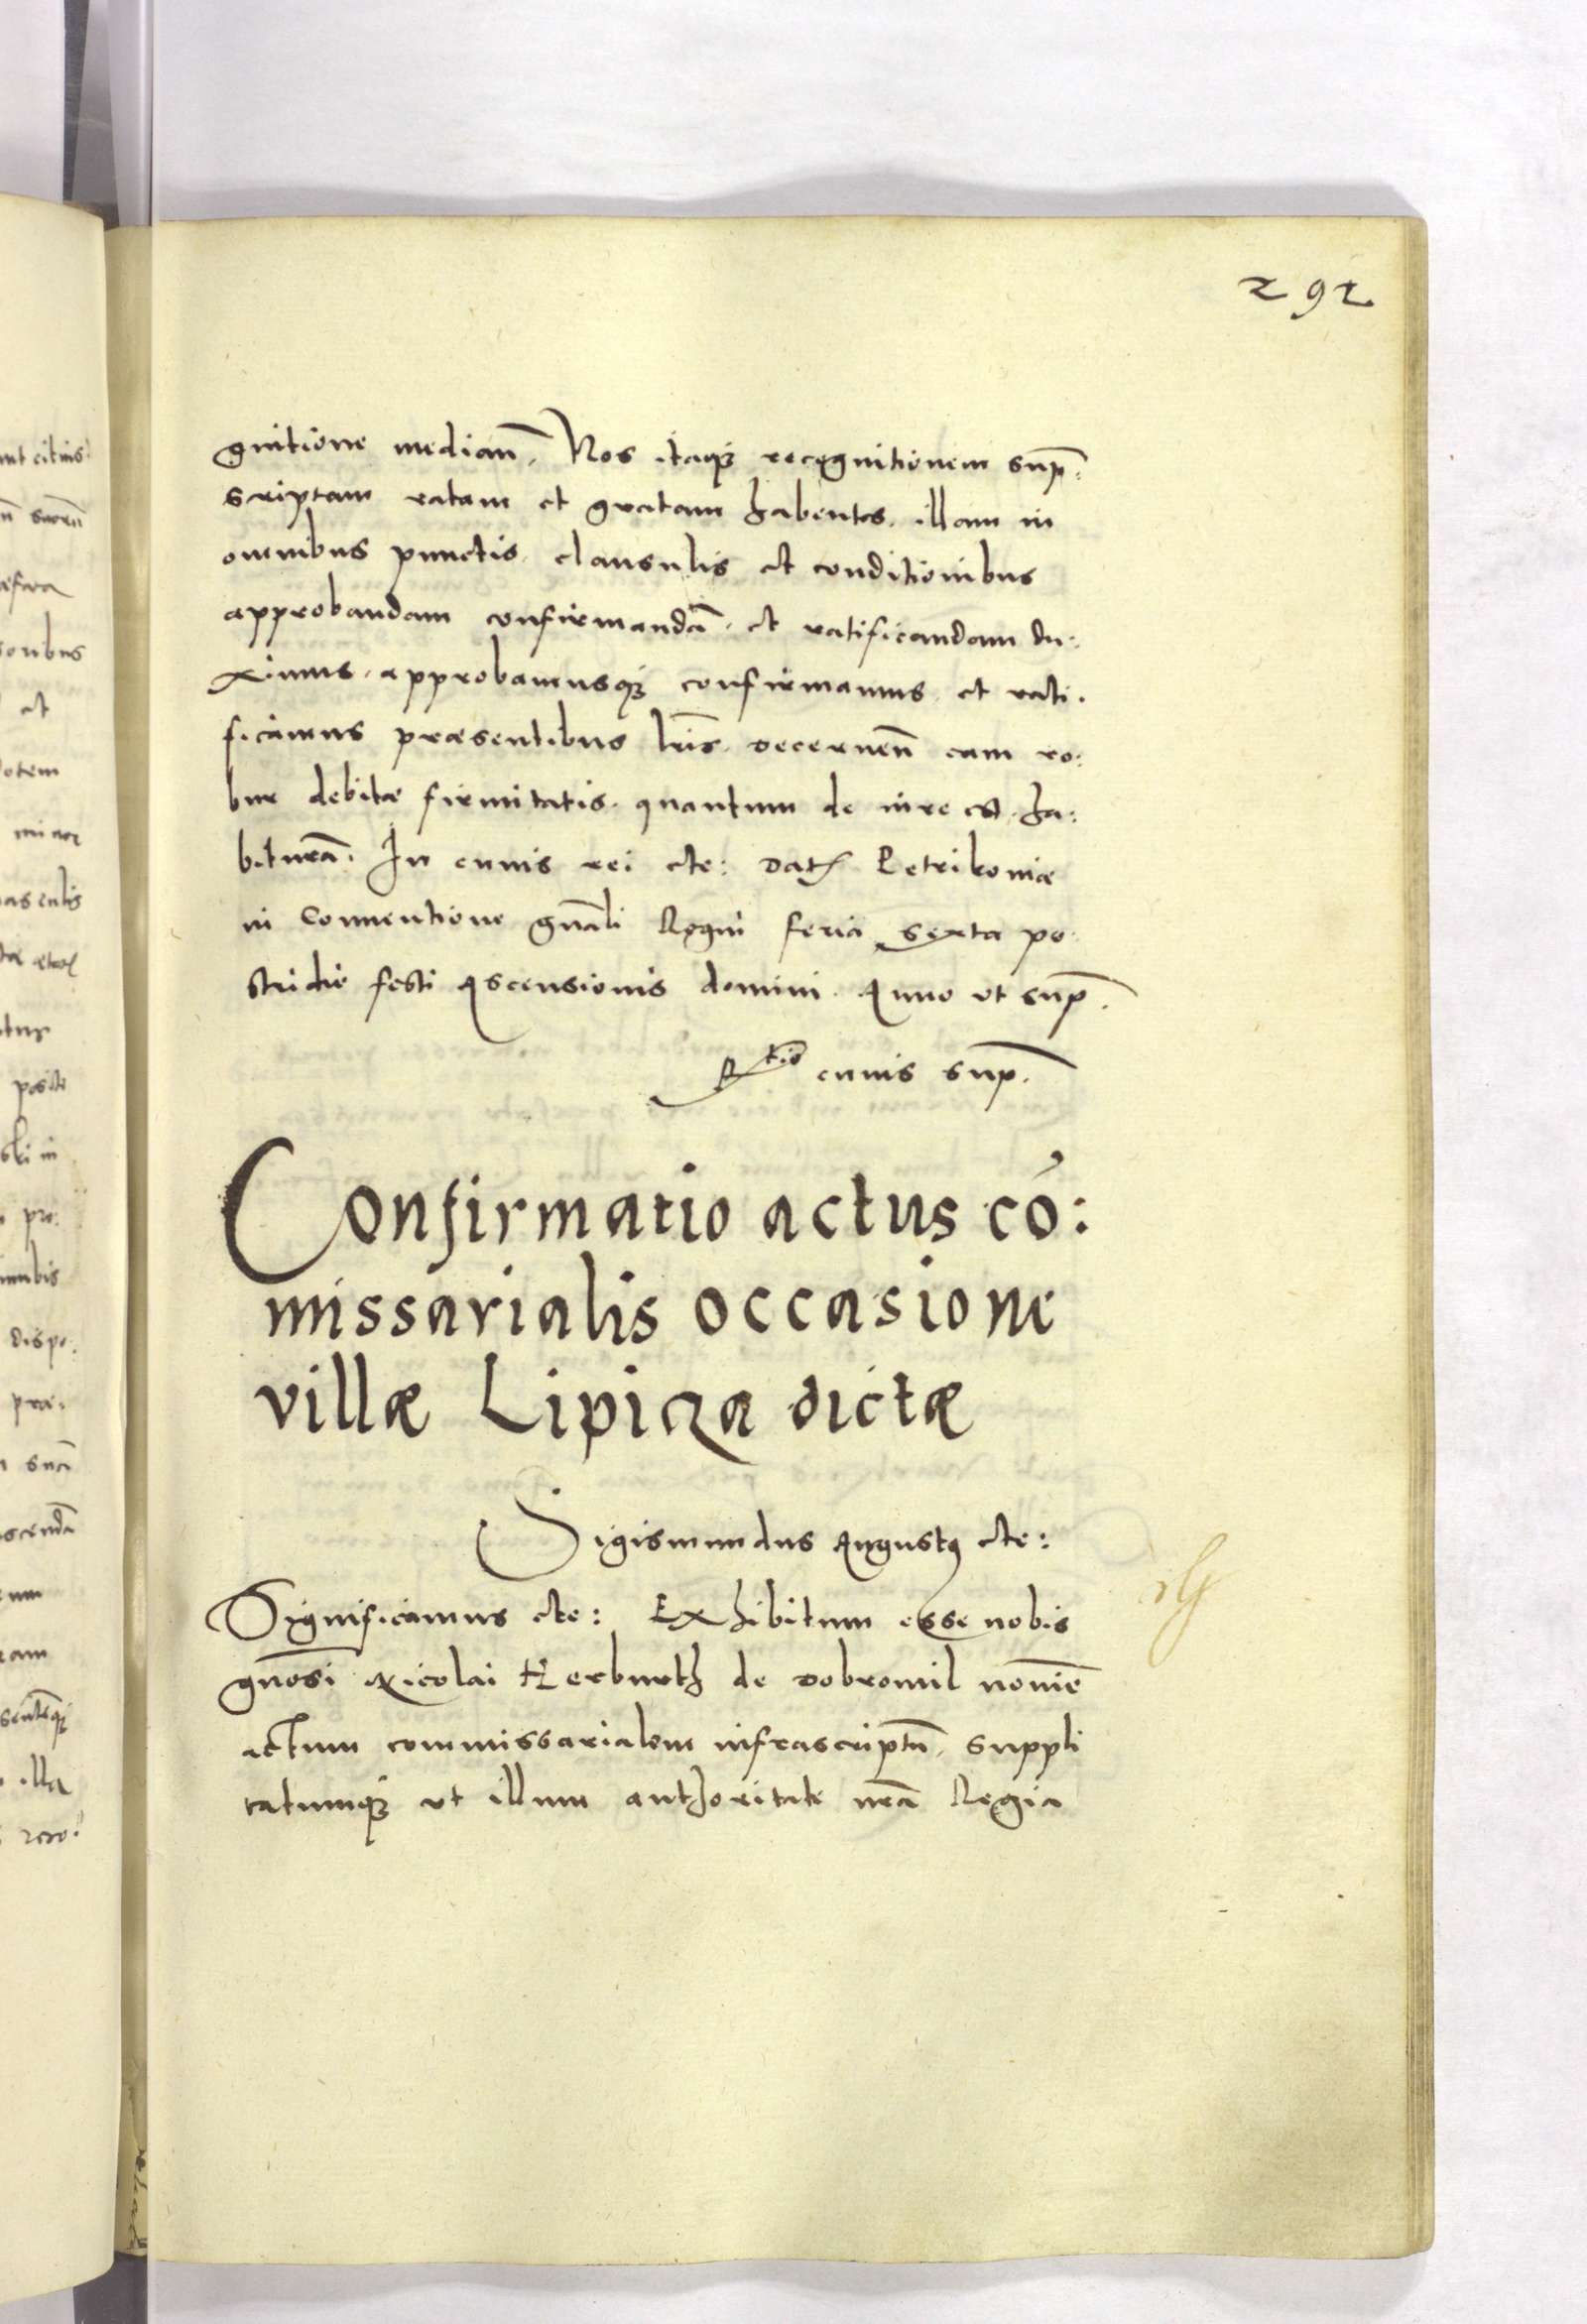 291
gnitione mediañ. Nos itaqꝫ recognitionem sup̄:
scriptam ratam et gratam habentes. illam in
omnibus punctis clausulis et conditionibus
approbandam confirmandā. et ratificandam du:
ximus. approbamusqꝫ confirmamus et rati:
ficamus præsentibus lr̄is. decerneñ eam ro:
bur debitæ firmitatis. quantum de iure est. ha:
biturā. In cuius rei etc: Dat Petrikoviæ
in Conventione gn̄ali Regni feria sexta po
stridie festi Ascensionis domini. Anno ut sup̄.
Rtio cuius sup̄.
Confirmatio actus cō:
missarialis occasione
villæ Lipicza dictæ
Sigismundus Augustꝰ etc:
Significamus etc: Exhibitum esse nobis
gn̄osi Nicolai Herburth de Dobromil nomīe
actum commissarialem infrascriptū. suppli
catumqꝫ ut illum authoritate nr̄a Regia